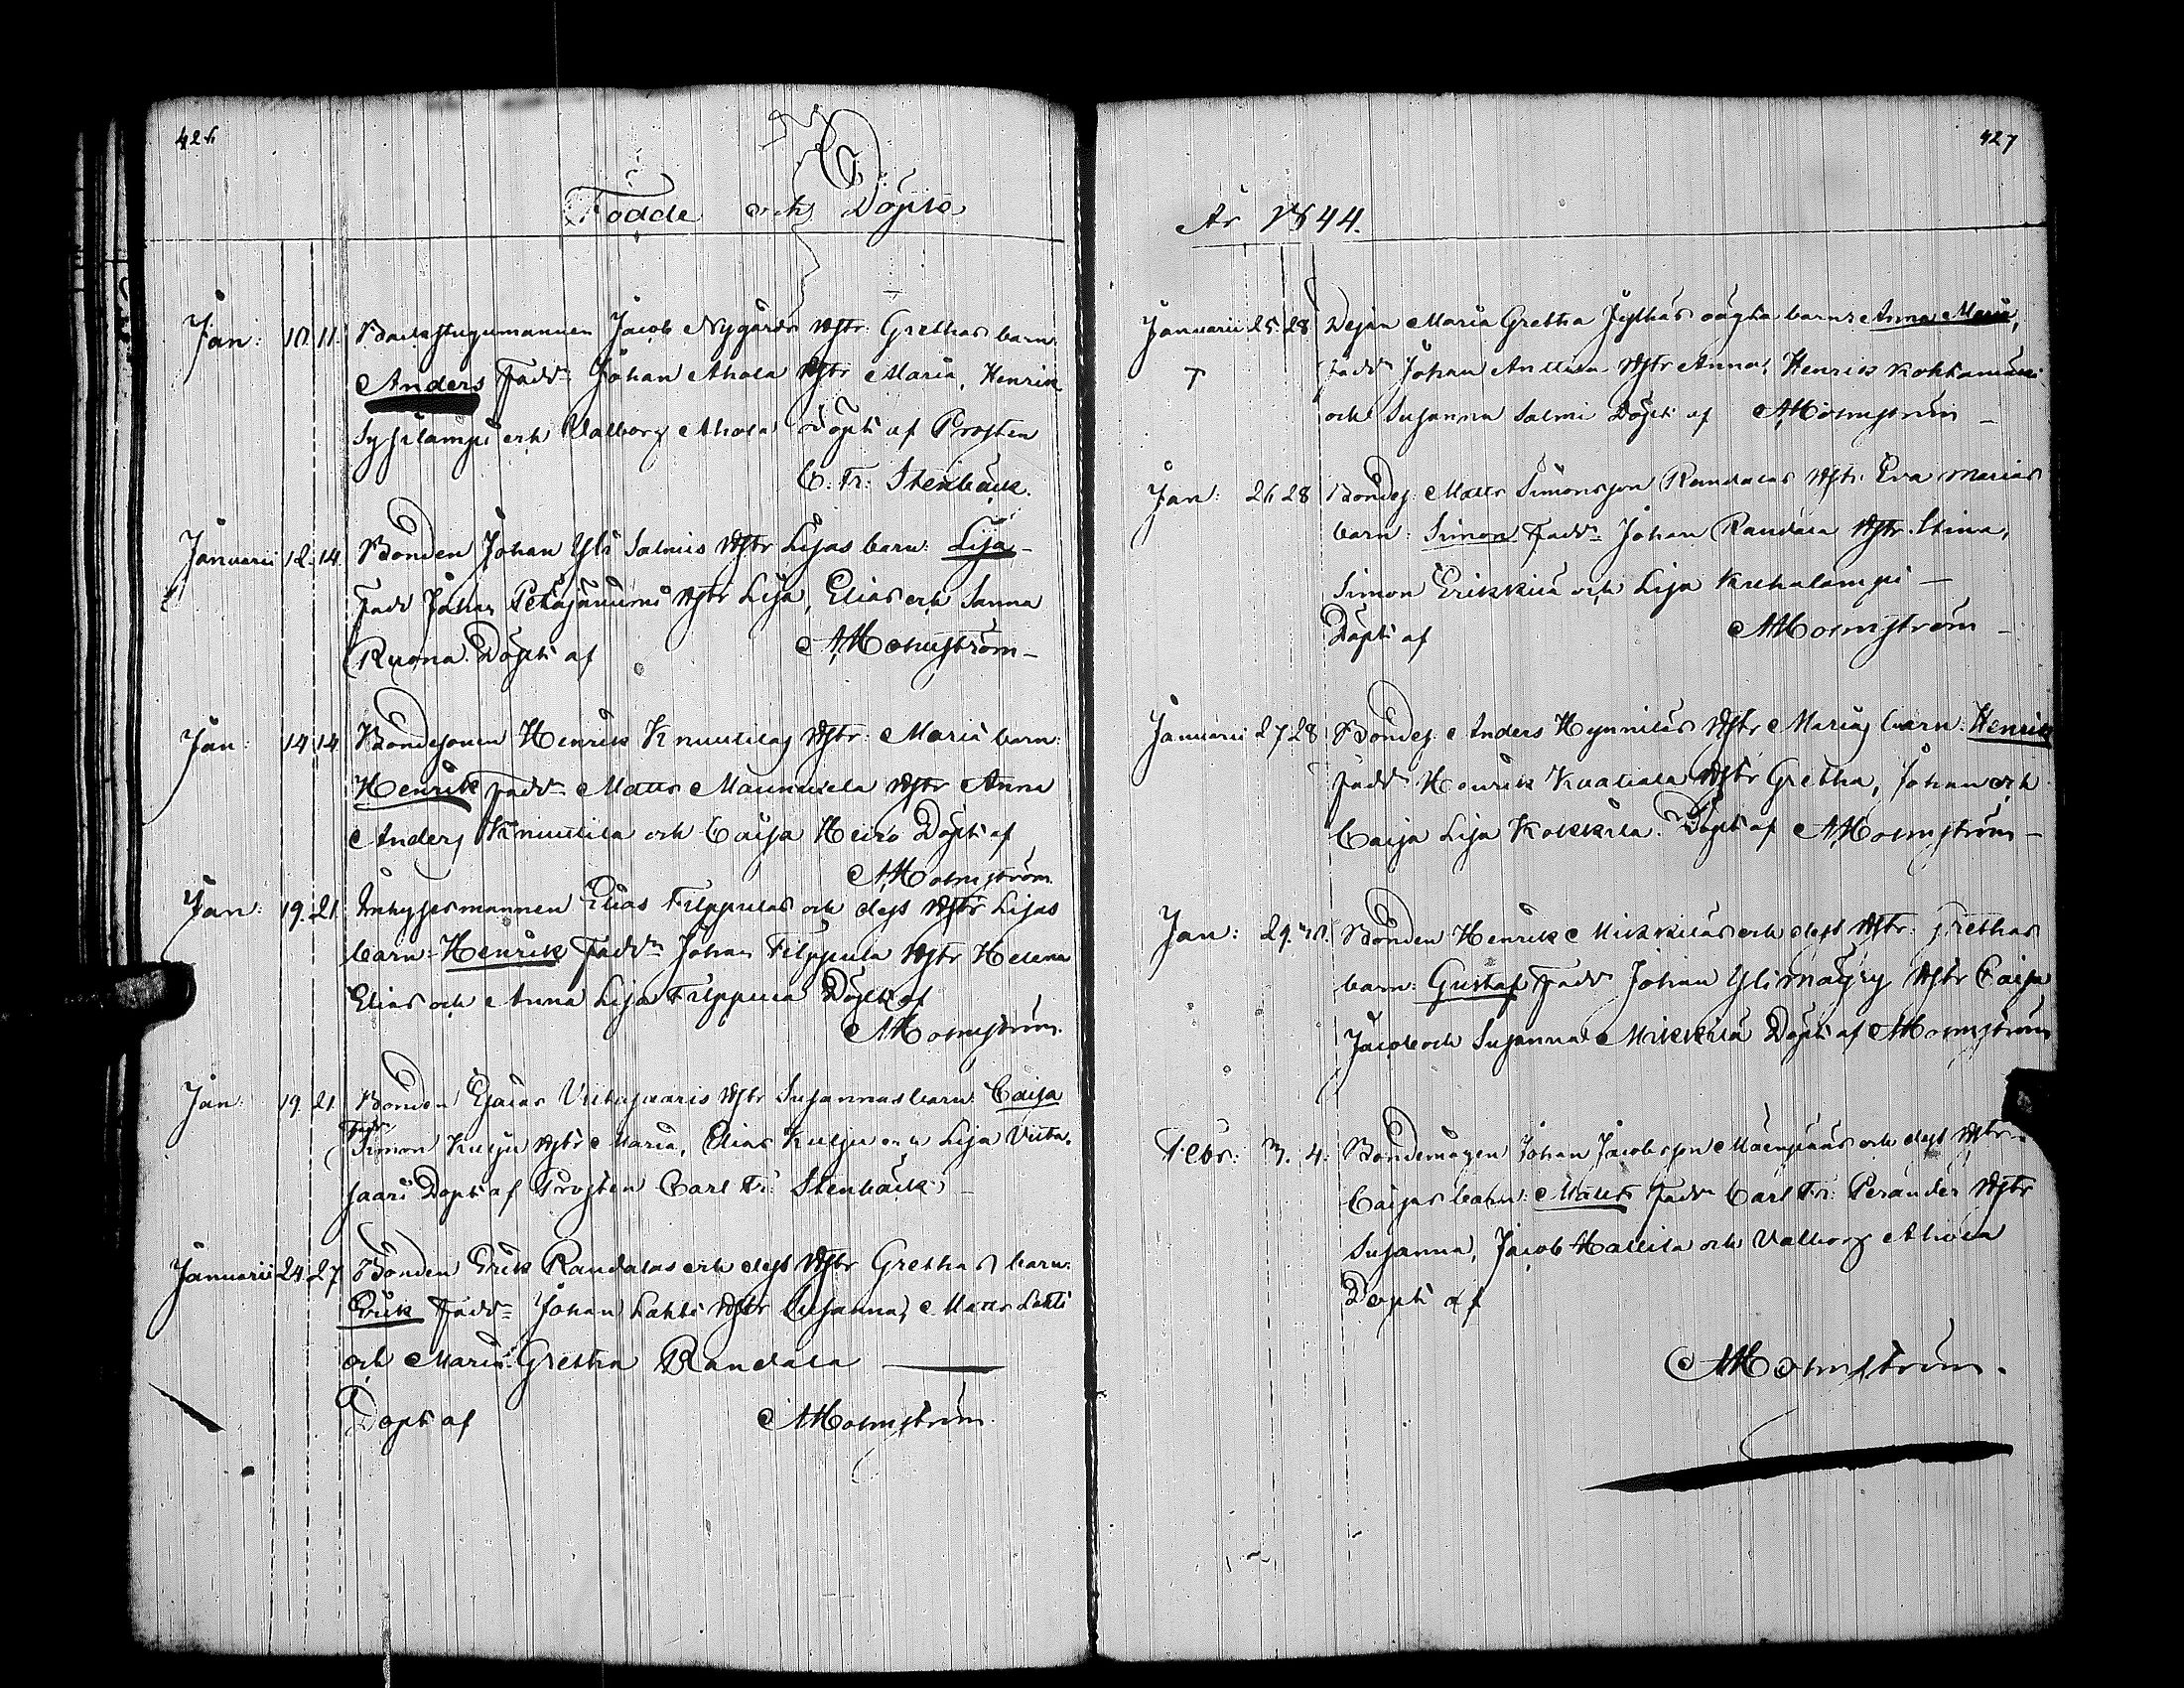 426
Födde och Döpte
Jan: 10. 11. Backstugumannen Jacob Nygårds hstr: Grethas barn:
Anders Fadd: Johan Ahola hstr Maria, Henrik
Syssilampi och Valborg Ahola Döpt af Prosten
C. Fr. Stenbäck.
Januarii 12. 14. Bonden Johan Yli Salmis hstr Lisas barn: Lisa
Fadd Johan Petäjäniemi hstr Lisa, Elias och Sanna
Ruona. Döpt af AHolmström
Jan: 14. 14 Bondesonen Henrik Knuutilas hstr: Maria barn:
Henrik Fadd: Matts Maunuksela hstr Anna
Anders Knuutila och Caisa Heiro Döpt af
AHolmström.
Jan: 19. 21 Inhysesmannen Elias Filppulas och dess hstr Lisas
barn: Henrik Fadd: Johan Filppula hstr Helena
Elias och Anna Lisa Filppula Döpt af
AHolmström.
Jan: 19. 21 Bonden Esaias Viitasaaris hstr Susannas barn: Caisa
Fadd
Simon Kulju hstr Maria, Elias Kulju och Lisa Viita-
saari Döpt af Prosten Carl Fr: Stenbäck
Januarii 24. 27 Bonden Erik Randalas och dess hstr Grethas barn:
Erik Fadd: Johan Lahti hstr Susanna, Matts Lahti
och Maria Gretha Randala
Döpt af AHolmström.
427
År 1844.
Januarii 25. 28 Pigan Maria Gretha Jylhäs oägta barn: Anna Maria,
T Fadd Johan Anttila hstr Anna, Henrik Kohtamäki
och Susanna Salmi Döpt af AHolmström
Jan: 26 28 Bondes: Matts Simonsson Randalas hstr. Eva Marias
barn: Simon Fadd: Johan Randala hstr. Stina,
Simon Erikkilä och Lisa Kuhalampi
Döpt af AHolmström
Januarii 27 28 Bondes: Anders Hynniläs hstr Marias barn: Henrik
Fadd Henrik Kaatiala hstr Gretha, Johan och
Caisa Lisa Kokkila. Döpt af AHolmström
Jan: 29. 30. Bonden Henrik Mikkiläs och dess hstr: Grethas
barn: Gustaf Fadd Johan Ylimäyry hstr Caisa
Jacob och Susanna Mikkilä Döpt af AHolmström
Febr: 3. 4. Bondemågen Johan Jacobsson Mäenpääs och dess hstr
Caisas barn: Matts Fadd Carl Fr: Perander hstr
Susanna, Jacob Hallila och Valborg Ahola
Döpt af
AHolmström.